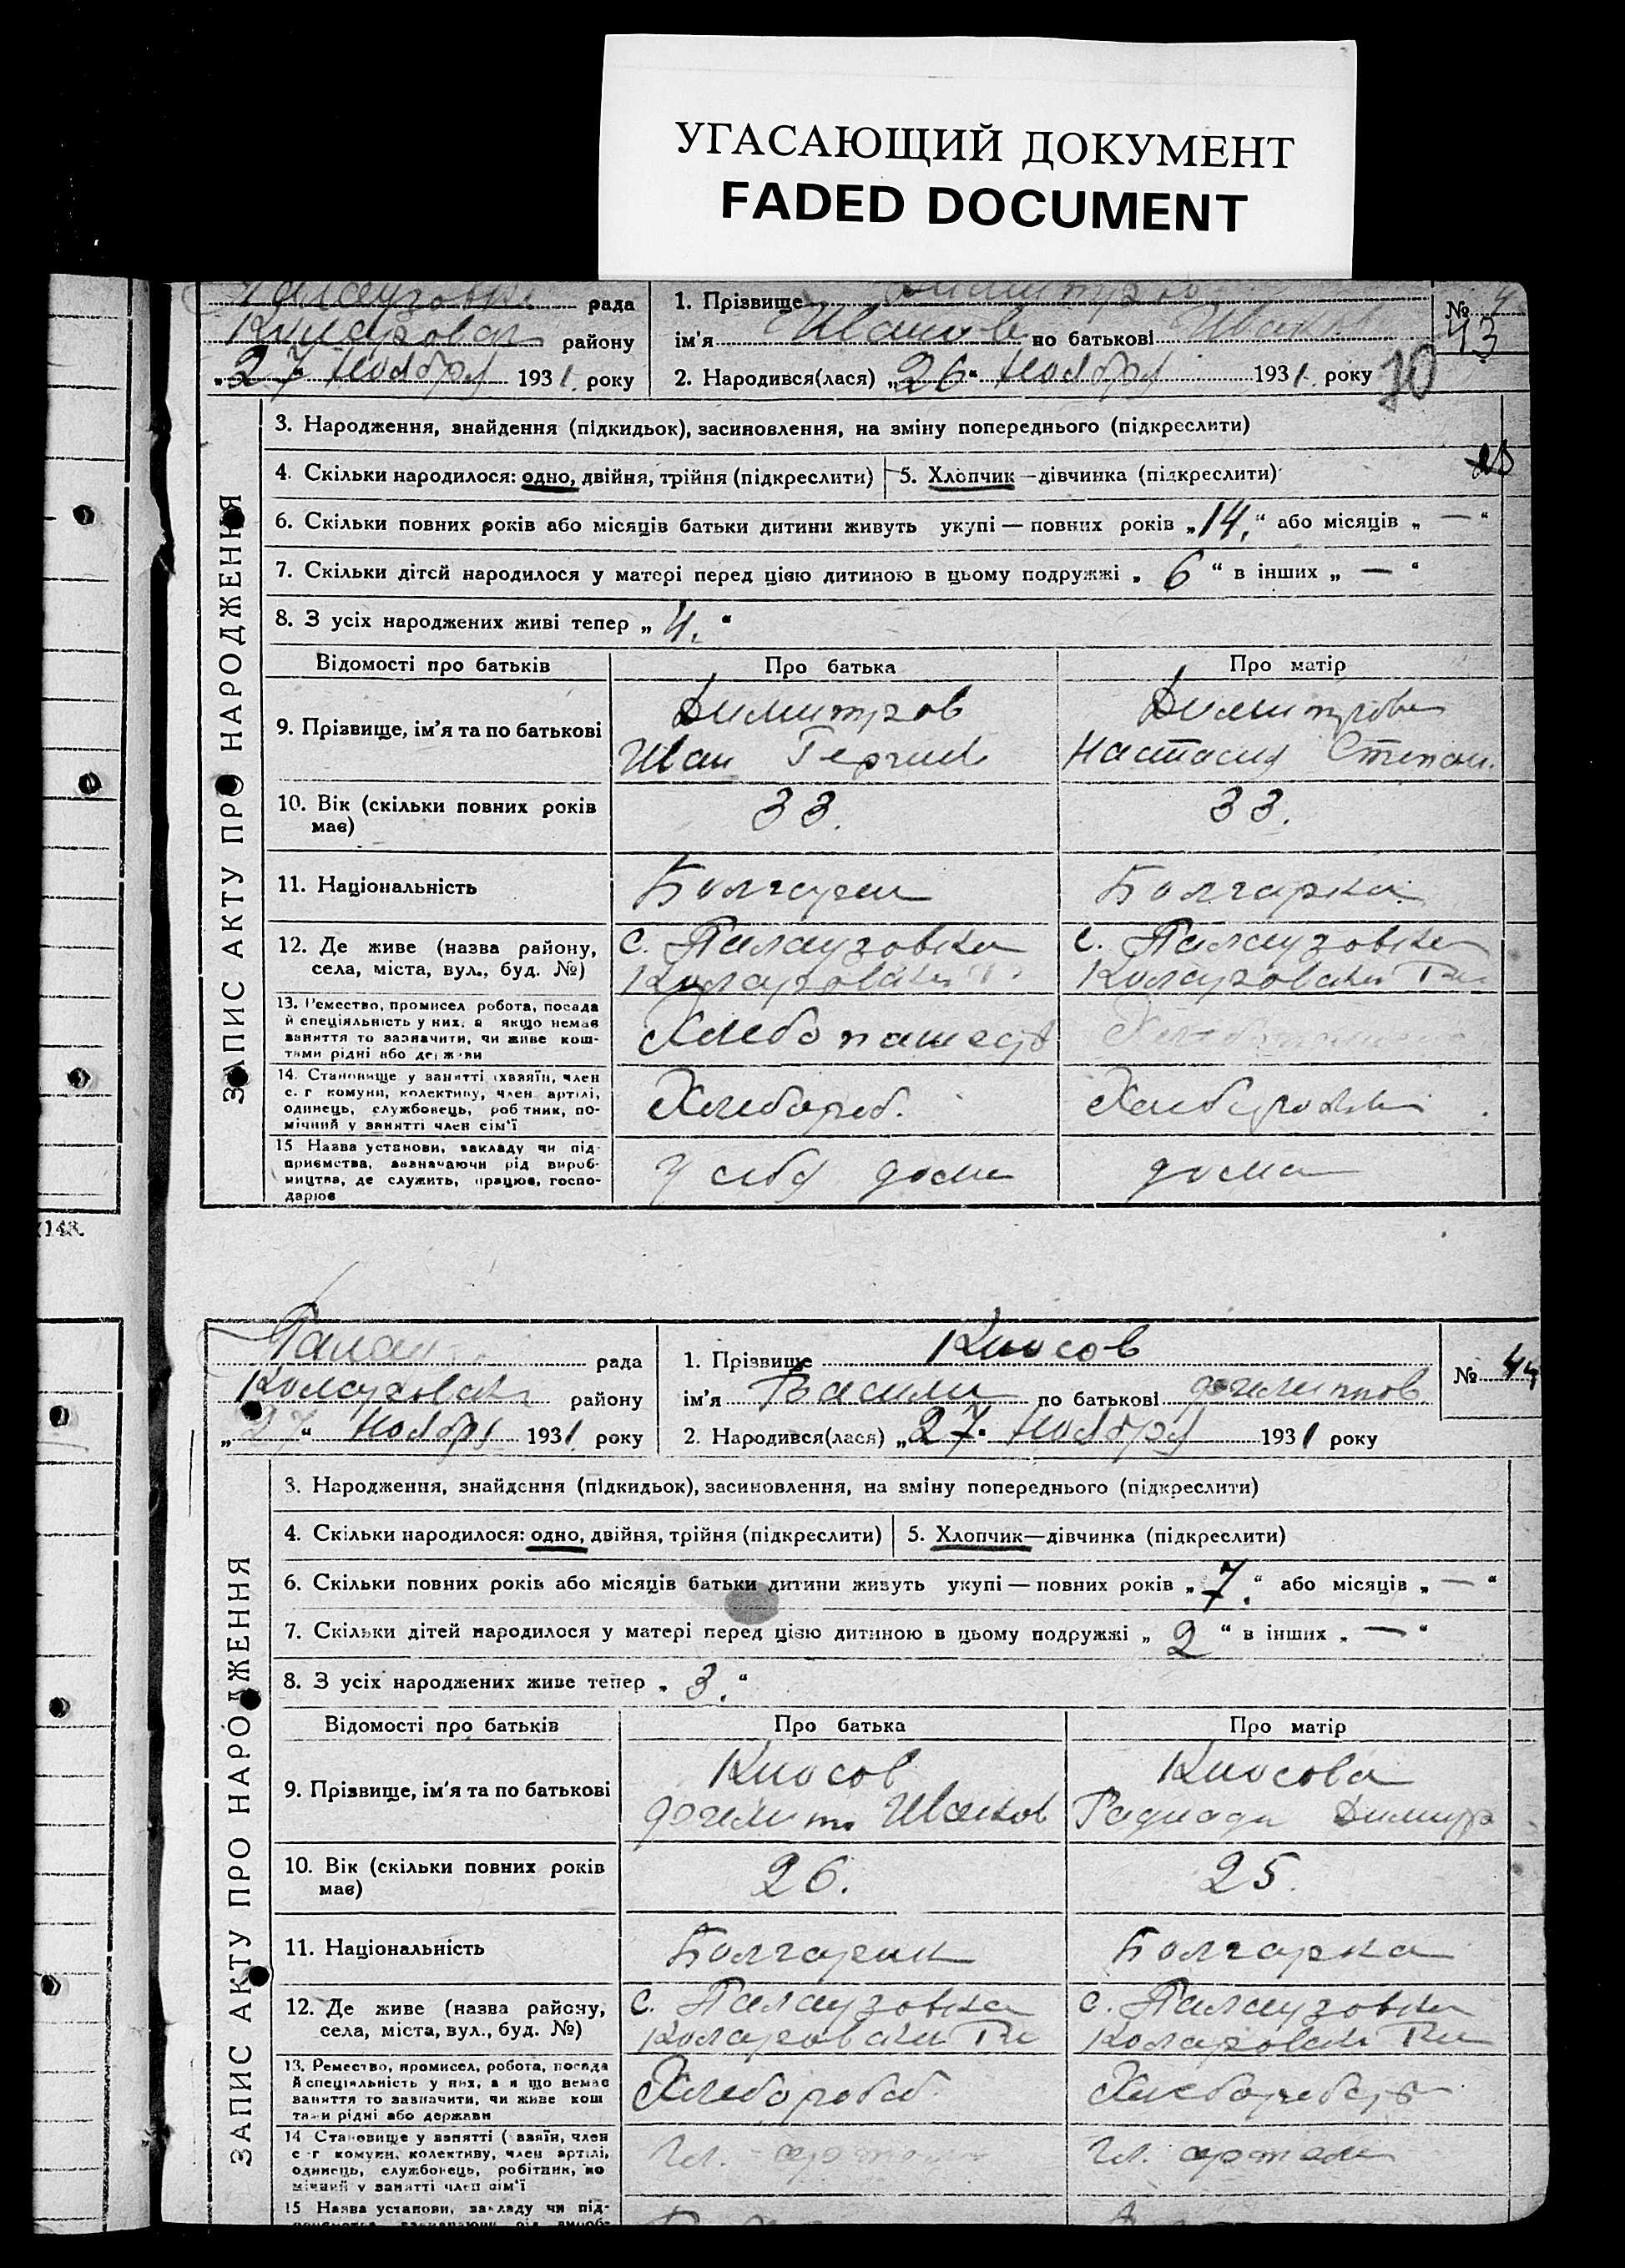 УГАСАЮЩИЙ ДОКУМЕНТ
FADED DOCUMENT
рада
району
„27“ Ноября 1931. року
1. Прізвище
ім'я Иванов по батькові Иван
2. Народився(лася) „26“ Ноября 1931. року
№
43
10
ЗАПИС АКТУ ПРО НАРОДЖЕННЯ
3. Народження, знайдення (підкидьок), засиновлення, на зміну попереднього (підкреслити)
4. Скільки народилося: одно, двійня, трійня (підкреслити)
5. Хлопчик—дівчинка (підкреслити)
6. Скільки повних років або місяців батьки дитини живуть укупі — повних років „14.“ або місяців „—“
7. Скільки дітей народилося у матері перед цією дитиною в цьому подружжі „6“ в інших „—“
8. З усіх народжених живі тепер „4.“
Відомості про батьків Про батька Про матір
9. Прізвище, ім'я та по батькові
Димитров
Иван
Димитрова
Настасия Степан.
10. Вік (скільки повних років
має)
33.
33.
11. Національність
Болгарин
Болгарка
12. Де живе (назва району,
села, міста, вул., буд. №)
с. Палаузовка
с. Палаузовка
13. Ремество, промисел робота, посада
й спеціяльність у них, а якщо немає
заняття то зазначити, чи живе кош-
тами рідні або держави
Хлебопашест
14. Становище у занятті (хазяїн, член
с. г комуни, колективу, член артілі,
одинець, службовець, робітник, по-
мічний у занятті член сім'ї
Хлебороб.
15 Назва установи, закладу чи під-
приємства, зазначаючи рід вироб-
ництва, де служить, працює, госпо-
дарює
У себя дома
дома
143.
рада
району
„27“ Ноября 1931. року
1. Прізвище Киосов
ім'я Василий по батькові
2. Народився(лася) „27“ Ноября 1931 року
№ 44
ЗАПИС АКТУ ПРО НАРОДЖЕННЯ
3. Народження, знайдення (підкидьок), засиновлення, на зміну попереднього (підкреслити)
4. Скільки народилося: одно, двійня, трійня (підкреслити)
5. Хлопчик—дівчинка (підкреслити)
6. Скільки повних років або місяців батьки дитини живуть укупі — повних років „7.“ або місяців „—“
7. Скільки дітей народилося у матері перед цією дитиною в цьому подружжі „2“ в інших „—“
8. З усіх народжених живе тепер „3.“
Відомості про батьків Про батька Про матір
9. Прізвище, ім'я та по батькові
Киосов
Иванов
Киосова
10. Вік (скільки повних років
має)
26.
25.
11. Національність
Болгарин
Болгарка
12. Де живе (назва району,
села, міста, вул., буд. №)
с. Палаузовка
с. Палаузовка
13. Ремество, промисел, робота, посада
й спеціяльність у них, а якщо немає
заняття то зазначити, чи живе кош
тами рідні або держави
Хлебороб
14 Становище у занятті (хазяїн, член
с-г комуни, колективу, член артілі,
одинець, службовець, робітник, по
мічний у занятті член сім'ї
Чл. артели
15 Назва установи, закладу чи під-